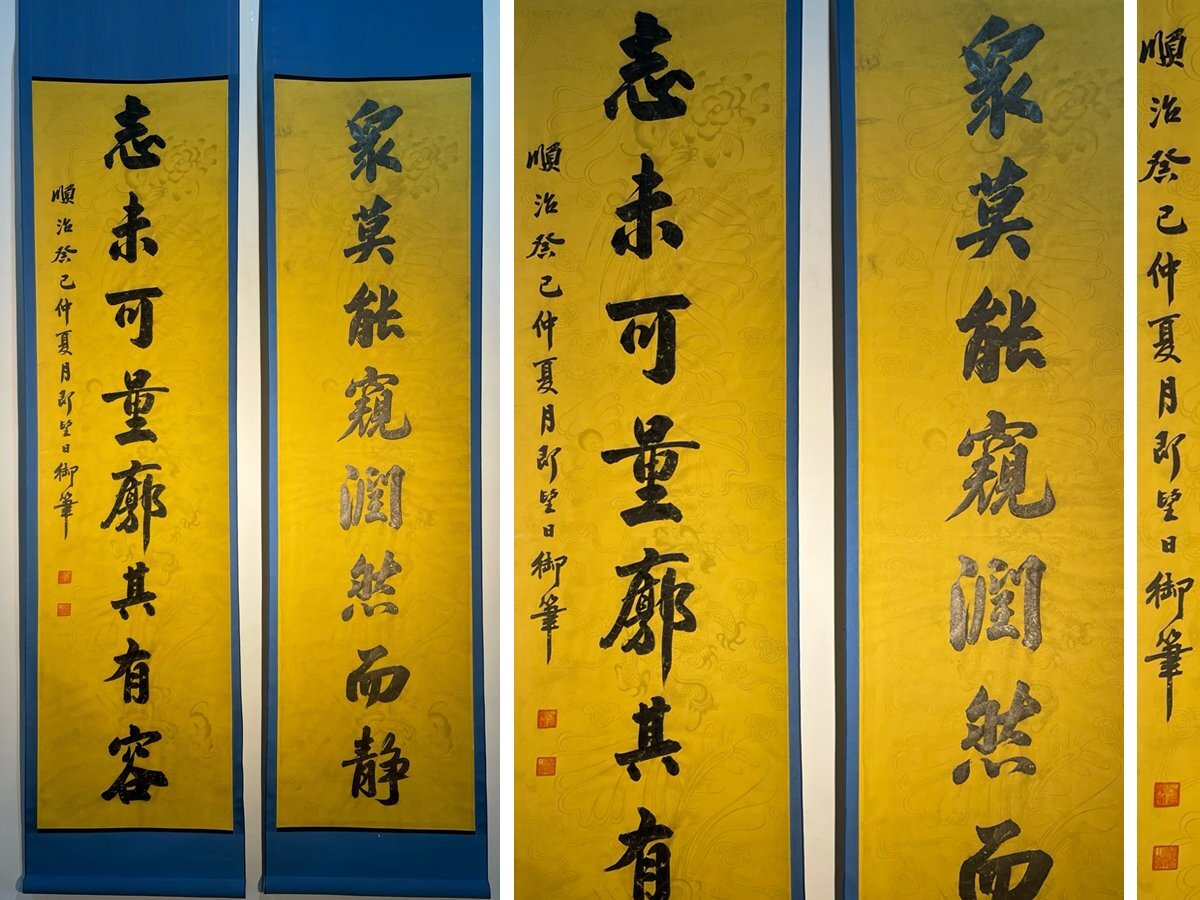 眾莫能窺潤然而静
志未可量廓其有容
順治癸巳仲夏月即望日御筆
眾莫能窺潤然而
志未可量廓其有
順治癸巳仲夏月即望日御筆
順治癸巳仲夏月即望日御筆